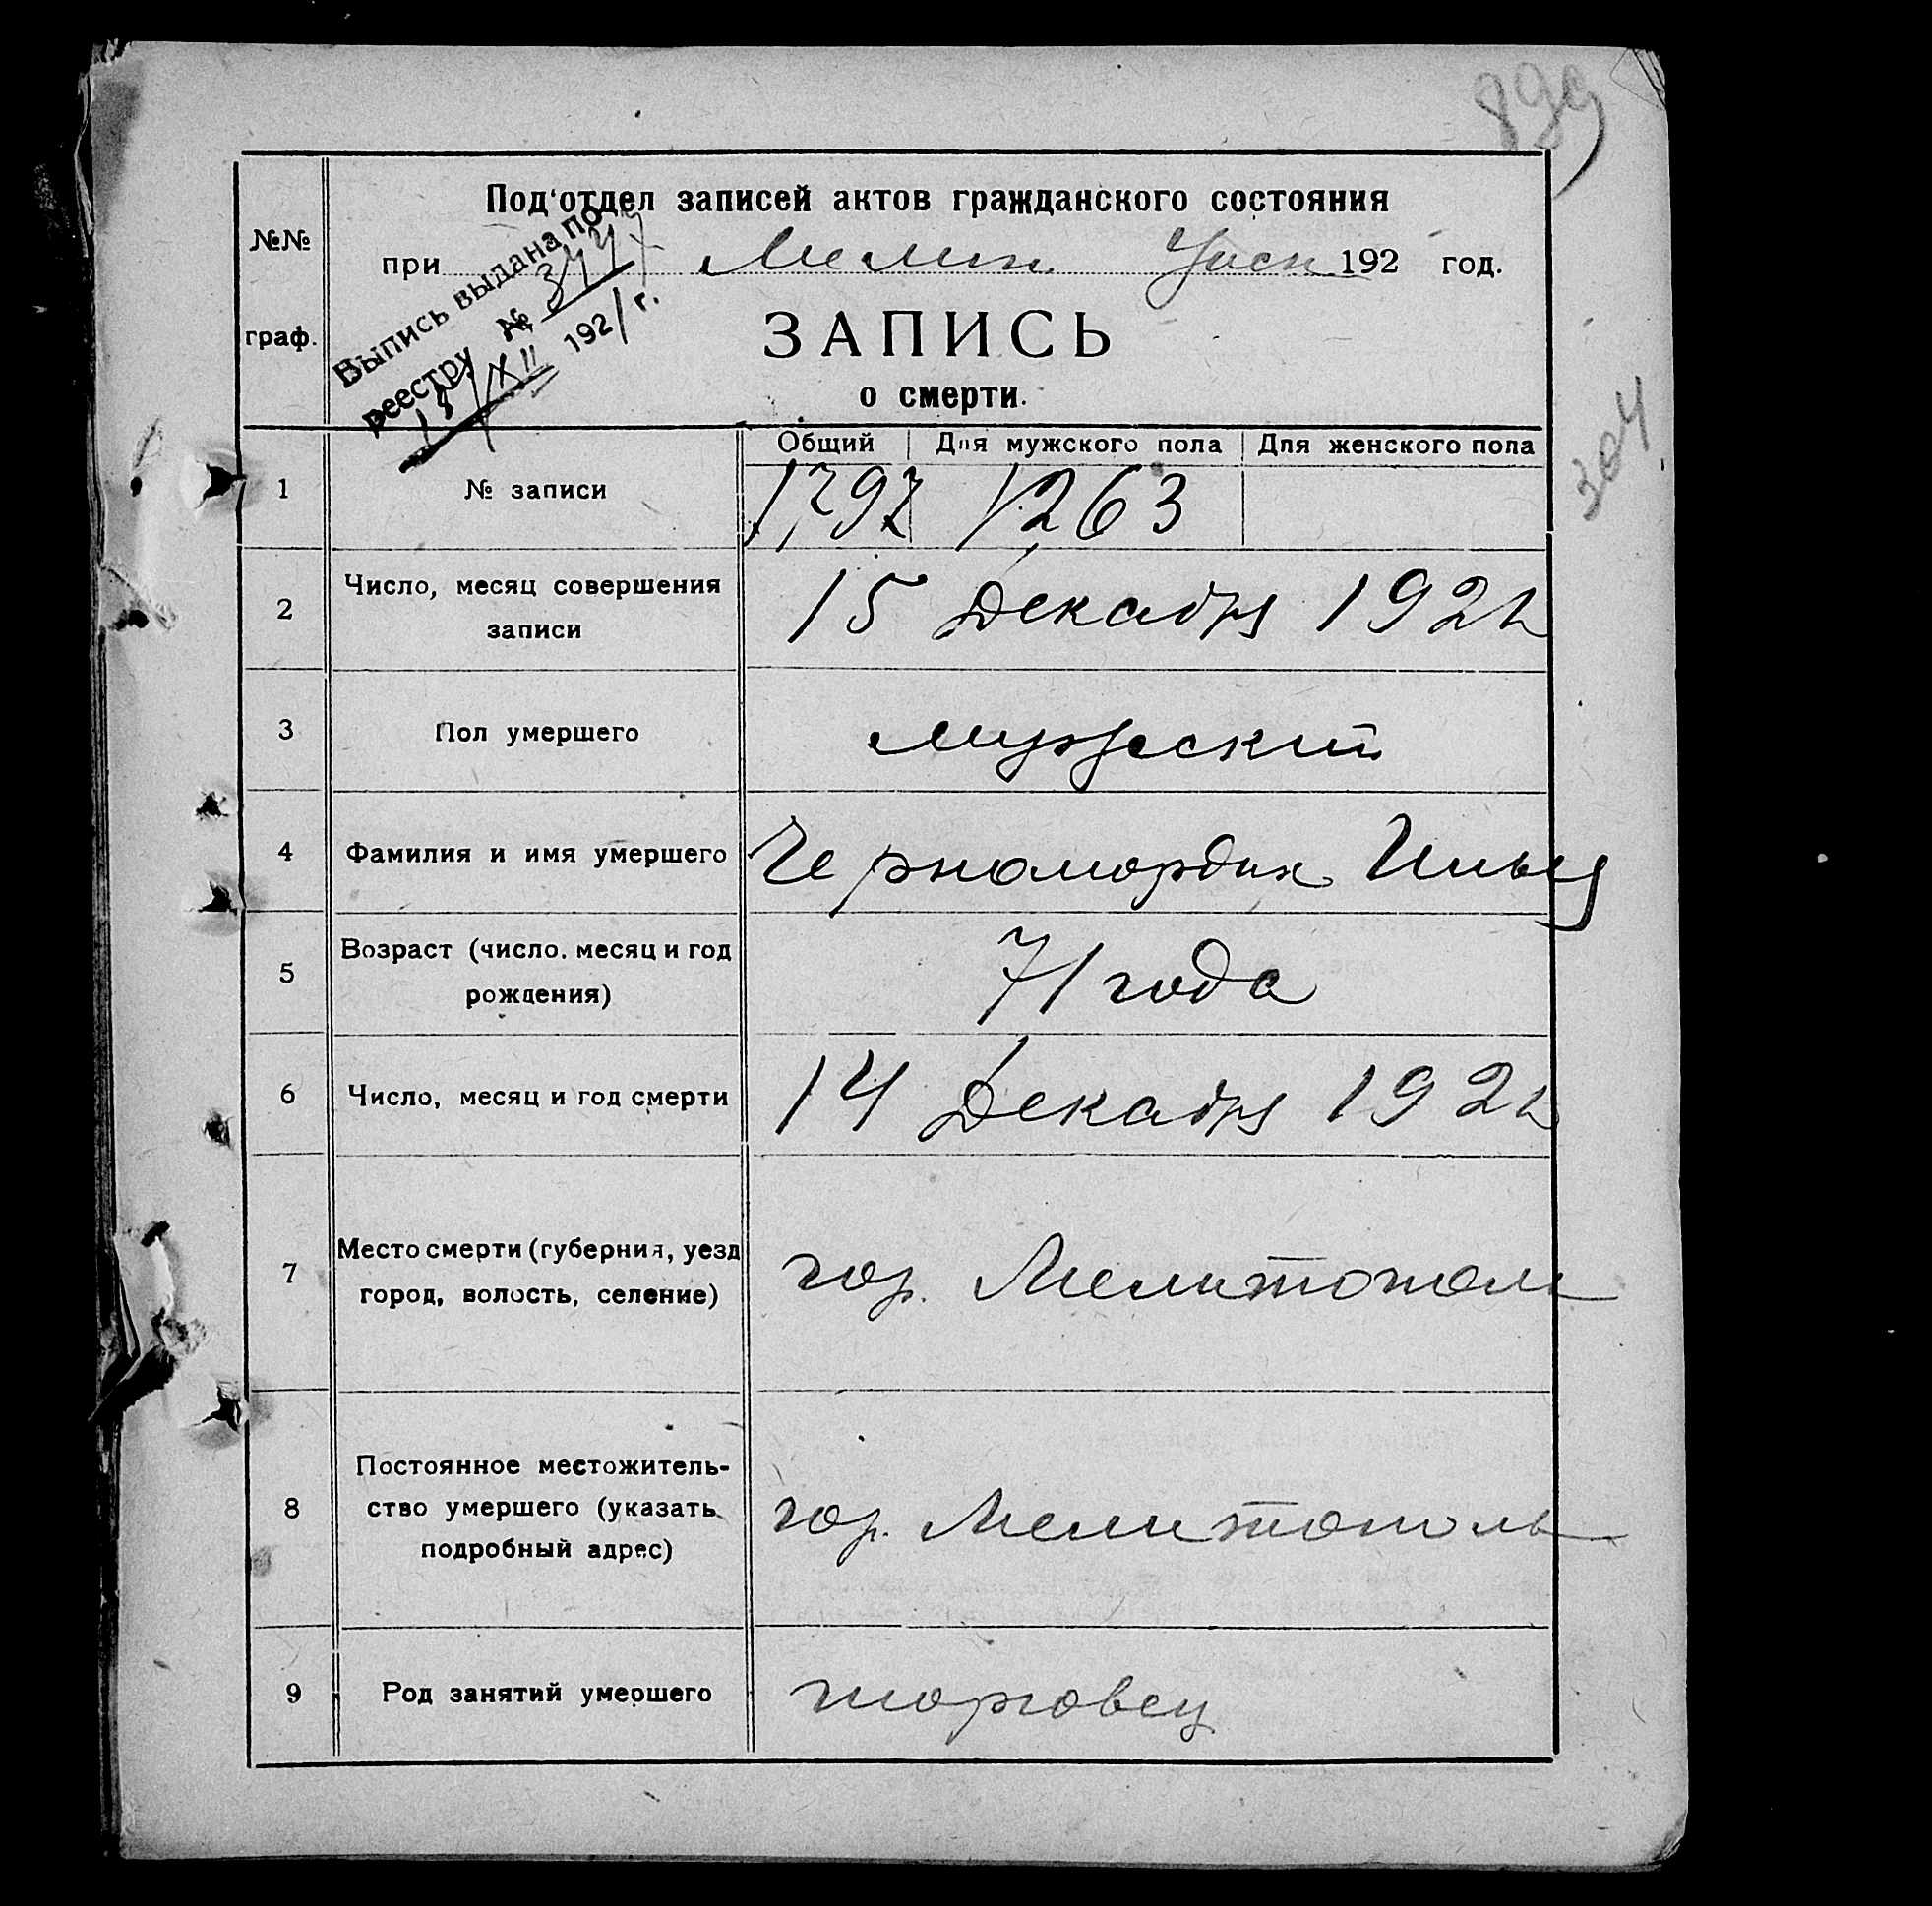 899
Под'отдел записей актов гражданского состояния
№№ граф.
при Мелит. Уисп 192 год.
Выпись выдана по
реестру № 3447
15/XII 1921 г.
ЗАПИСЬ
о смерти.
304
Общий Для мужского пола Для женского пола
1 № записи 1797 1263
2 Число, месяц совершения
записи
15 Декабря 1921
3 Пол умершего мужеский
4 Фамилия и имя умершего Черномордик Илья
5 Возраст (число. месяц и год
рождения)
71 года
6 Число, месяц и год смерти 14 Декабря 1921
7 Место смерти (губерния, уезд
город, волость, селение)
гор. Мелитополь
8 Постоянное местожитель-
ство умершего (указать
подробный адрес)
гор. Мелитополь
9 Род занятий умершего торговец